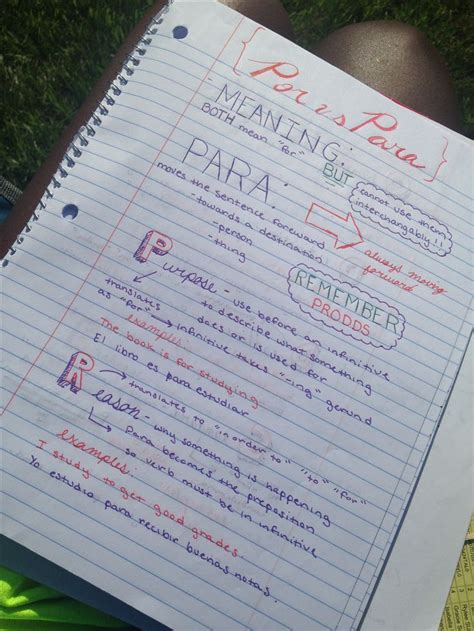 {Por vs Para}
- MEANING:
BOTH mean "for"
BUT
cannot use them
interchangably!!
PARA:
moves the sentence foreward
- towards a destination
- person
- thing
always moving
foreward
REMEMBER
PRODDS
Purpose - use before an infinitive
to describe what something
does or is used for
translates
as "for"
infinitive takes "-ing" gerund
examples:
The book is for studying
El libro es para estudiar
Reason - why something is happening
translates to "in order to" "to" "for"
Para becomes the preposition
so verb must be in infinitive
examples:
I study to get good grades.
Yo estudio para recibir buenas notas.